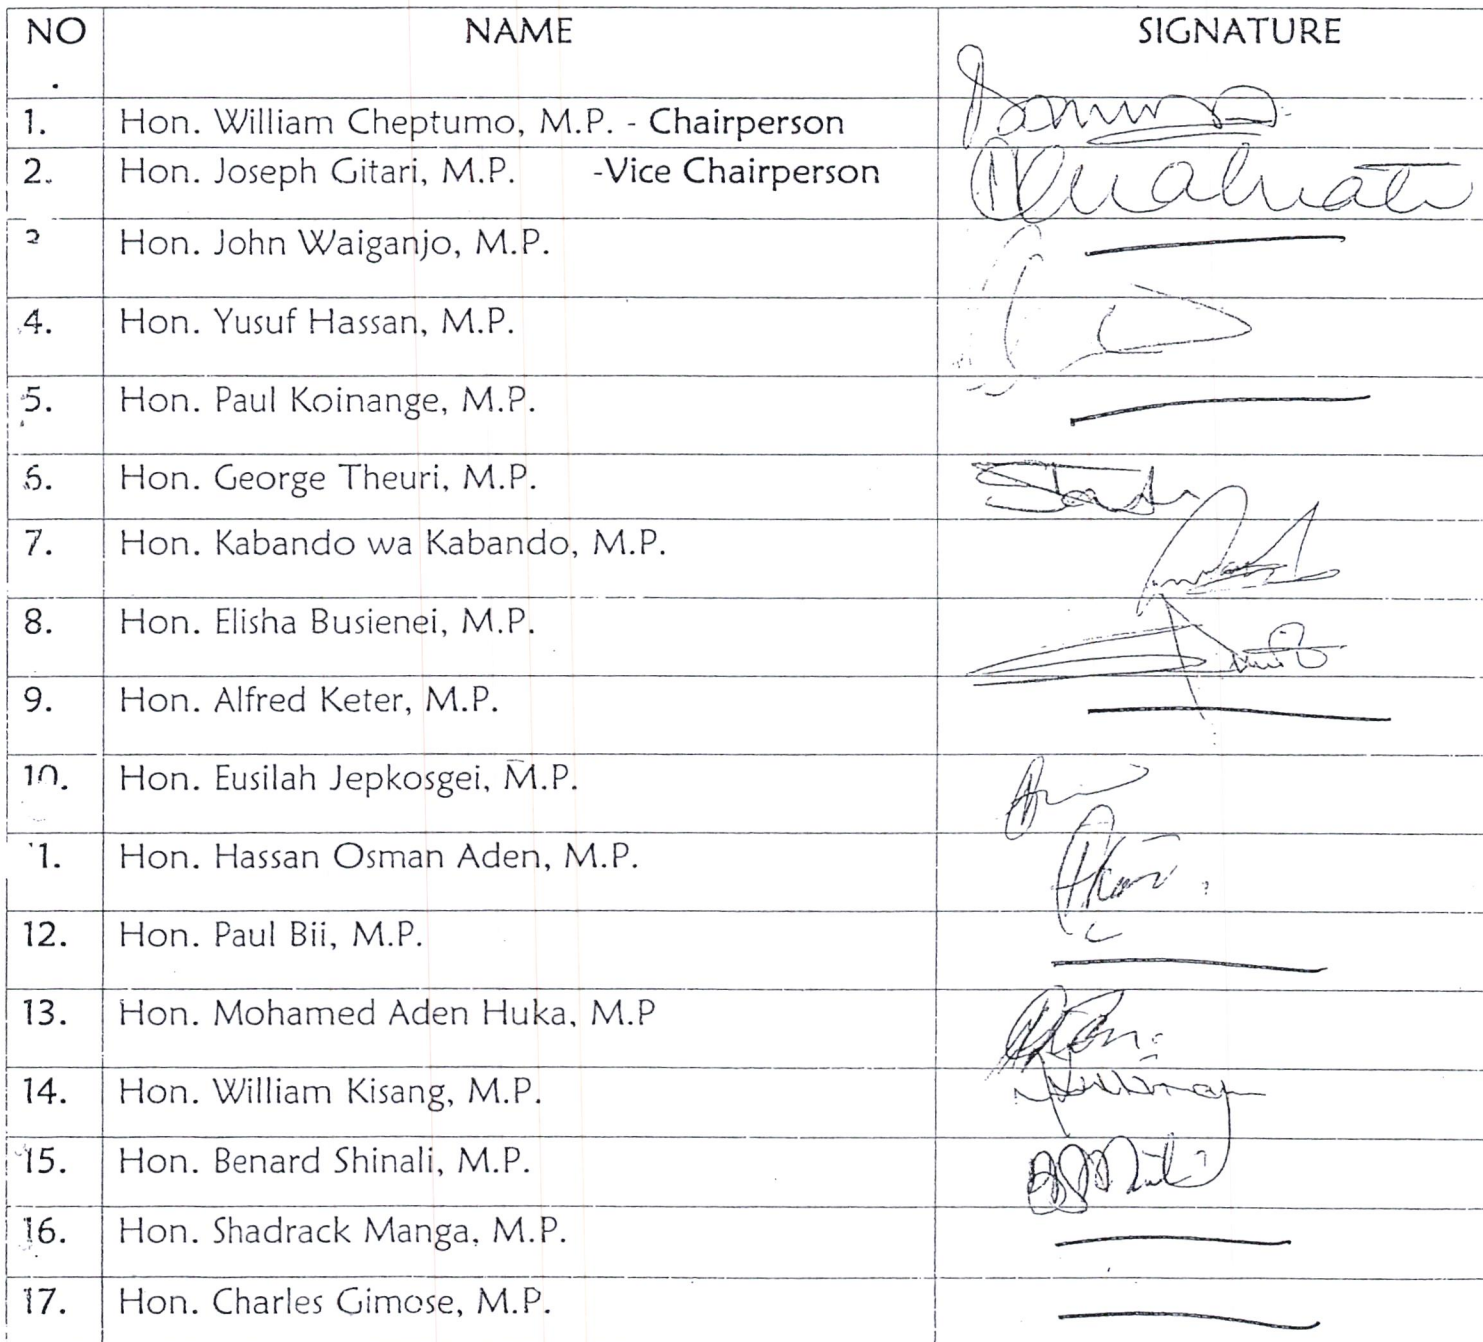 NO
.
NAME
SIGNATURE
1. Hon. William Cheptumo, M.P. - Chairperson
2. Hon. Joseph Gitari, M.P. -Vice Chairperson
3 Hon. John Waiganjo, M.P.
4. Hon. Yusuf Hassan, M.P.
5. Hon. Paul Koinange, M.P.
6. Hon. George Theuri, M.P.
7. Hon. Kabando wa Kabando, M.P.
8. Hon. Elisha Busienei, M.P.
9. Hon. Alfred Keter, M.P.
10. Hon. Eusilah Jepkosgei, M.P.
11. Hon. Hassan Osman Aden, M.P.
12. Hon. Paul Bii, M.P.
13. Hon. Mohamed Aden Huka, M.P
14. Hon. William Kisang, M.P.
15. Hon. Benard Shinali, M.P.
16. Hon. Shadrack Manga, M.P.
17. Hon. Charles Gimose, M.P.